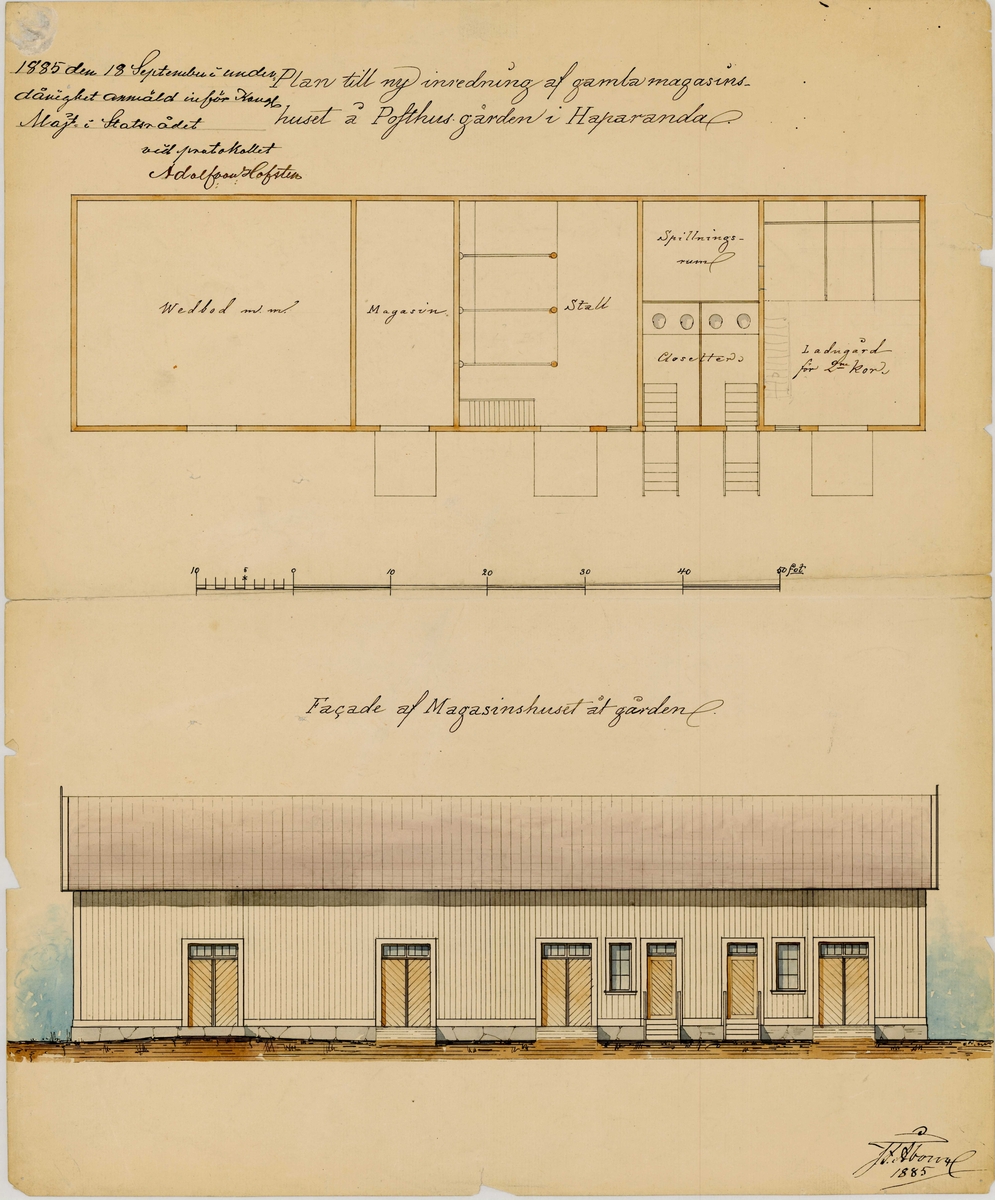 1885 den 18 September i under-
dånighet anmäld inför Kongl
Majt. i Statsrådet
vid protokollet
Adolf von Hofsten
Plan till ny inredning af gamla magasins-
huset å Posthus.gården i Haparanda.
Wedbod m. m.
Magasin.
Stall
Spillnings-
rum
Closetter.
Ladugård
för 2ne kor.
10 5 0 10 20 30 40 50 fot
Façade af Magasinshuset åt gården.
1885